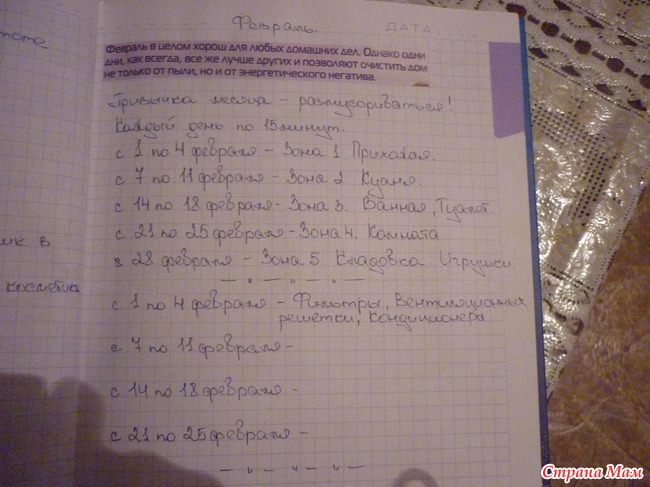 Февраль
ДАТА
Февраль в целом хорош для любых домашних дел. Однако одни
дни, как всегда, все же лучше других и позволяют очистить дом
не только от пыли, но и от энергетического негатива.
Привычка месяца - размусориваться!
Каждый день по 15 минут.
с 1 по 4 февраля - Зона 1. Прихожая.
с 7 по 11 февраля - Зона 2. Кухня.
с 14 по 18 февраля - Зона 3. Ванная, Туалет.
с 21 по 25 февраля - Зона 4. Комната
в 28 февраля - Зона 5. Кладовка. Игрушки.
— " — " — " —
с 1 по 4 февраля - Фильтры, вентиляционных
решётки, кондиционера
с 7 по 11 февраля -
с 14 по 18 февраля -
с 21 по 25 февраля -
— " — " — " —
в
косметика
Страна Мам